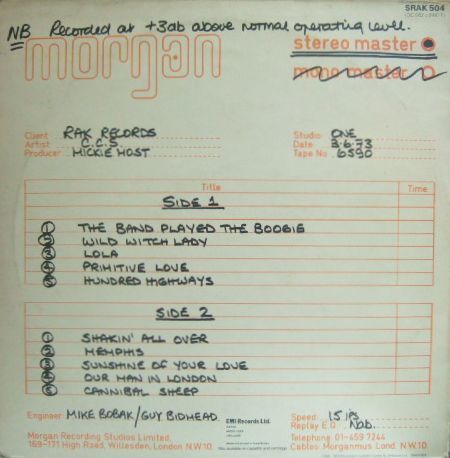 SRAK 504
NB Recorded at +3db above normal operating level.
morgan
stereo master
mono master
Client RAK RECORDS
Artist C.C.S.
Producer MICKIE MOST
Studio ONE
Date 3.6.73
Tape No 6590
Title Time
SIDE 1
1 THE BAND PLAYED THE BOOGIE
2 WILD WITCH LADY
3 LOLA
4 PRIMITIVE LOVE
5 HUNDRED HIGHWAYS
SIDE 2
1 SHAKIN' ALL OVER
2 MEMPHIS
3 SUNSHINE OF YOUR LOVE
4 OUR MAN IN LONDON
5 CANNIBAL SHEEP
Engineer MIKE BOBAK/GUY BIDMEAD
EMI Records Ltd.
Speed 15 ips
Replay E.Q. Nab.
Morgan Recording Studios Limited,
169-171 High Road, Willesden, London N.W.10.
Telephone 01-459 7244
Cables Morganmus Lond. N.W.10